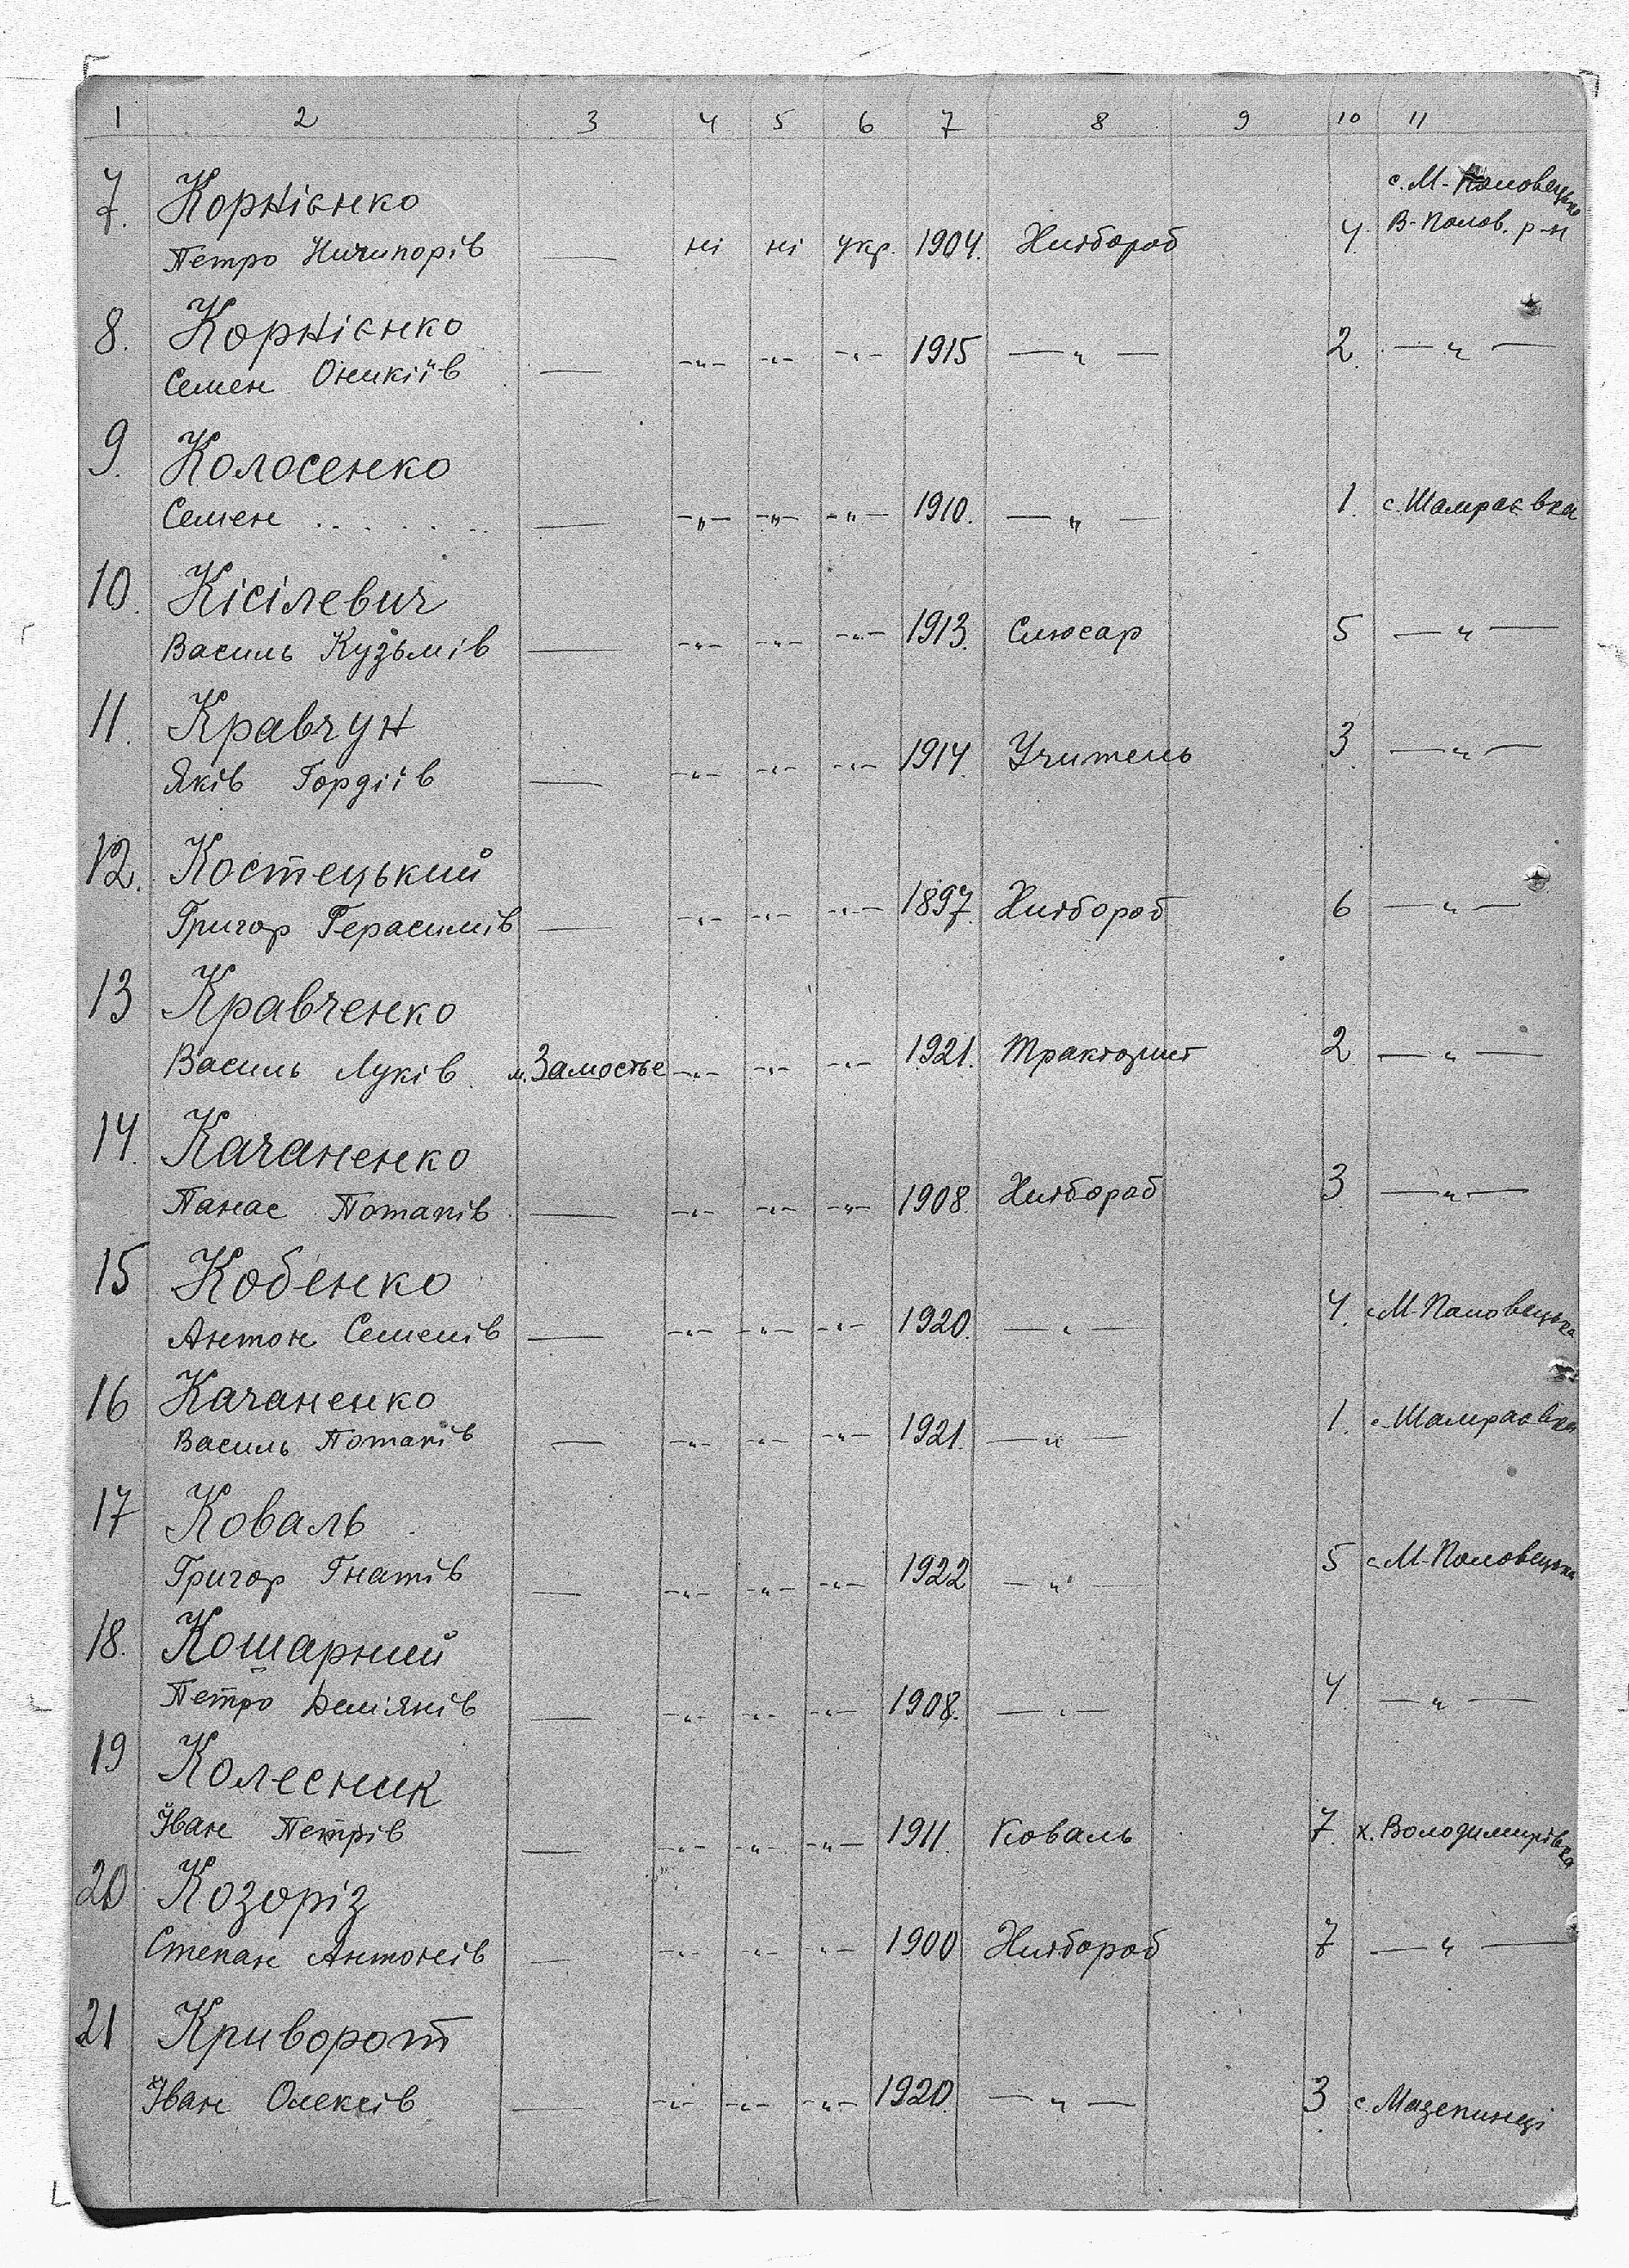 1 2 3 4 5 6 7 8 9 10 11
7. Корнієнко с. М-Половецьке
Петро Ничипорів — ні ні укр. 1904. Хлібороб 4. В-Полов. р-н
8. Корнієнко
Семен Оникіїв — -"- -"- -"- 1915 —"— 2. —"—
9. Колосенко
Семен . . . . . . — -"- -"- -"- 1910. —"— 1. с. Шамраєвка
10. Кісілевич
Василь Кузьмів — -"- -"- -"- 1913. Слюсар 5 —"—
11. Кравчун
Яків Гордіїв — -"- -"- -"- 1914. Учитель 3. —"—
12. Костецький
Григор Герасимів — -"- -"- -"- 1897. Хлібороб 6 —"—
13 Кравченко
Василь Луків. м. Замостье -"- -"- -"- 1921. Тракторист 2 —"—
14. Качаненко
Панас Потапів — -"- -"- -"- 1908. Хлібороб 3 —"—
15 Кобенко
Антон Семенів — -"- -"- -"- 1920. —"— 4. с М-Половецька
16 Качаненко
Василь Потапів — -"- -"- -"- 1921. —"— 1. с Шамраєвка
17 Коваль
Григор Гнатів — -"- -"- -"- 1922 —"— 5 с. М-Половецька
18. Кошарний
Петро Дем'янів — -"- -"- -"- 1908. —"— 4. —"—
19 Колесник
Іван Петрів — -"- -"- -"- 1911. Коваль 7. х. Володимирівка
20 Козоріз
Степан Антонів — -"- -"- -"- 1900 Хлібороб 7 —"—
21 Криворот
Іван Олексів — -"- -"- -"- 1920. —"— 3. с. Мазепинці